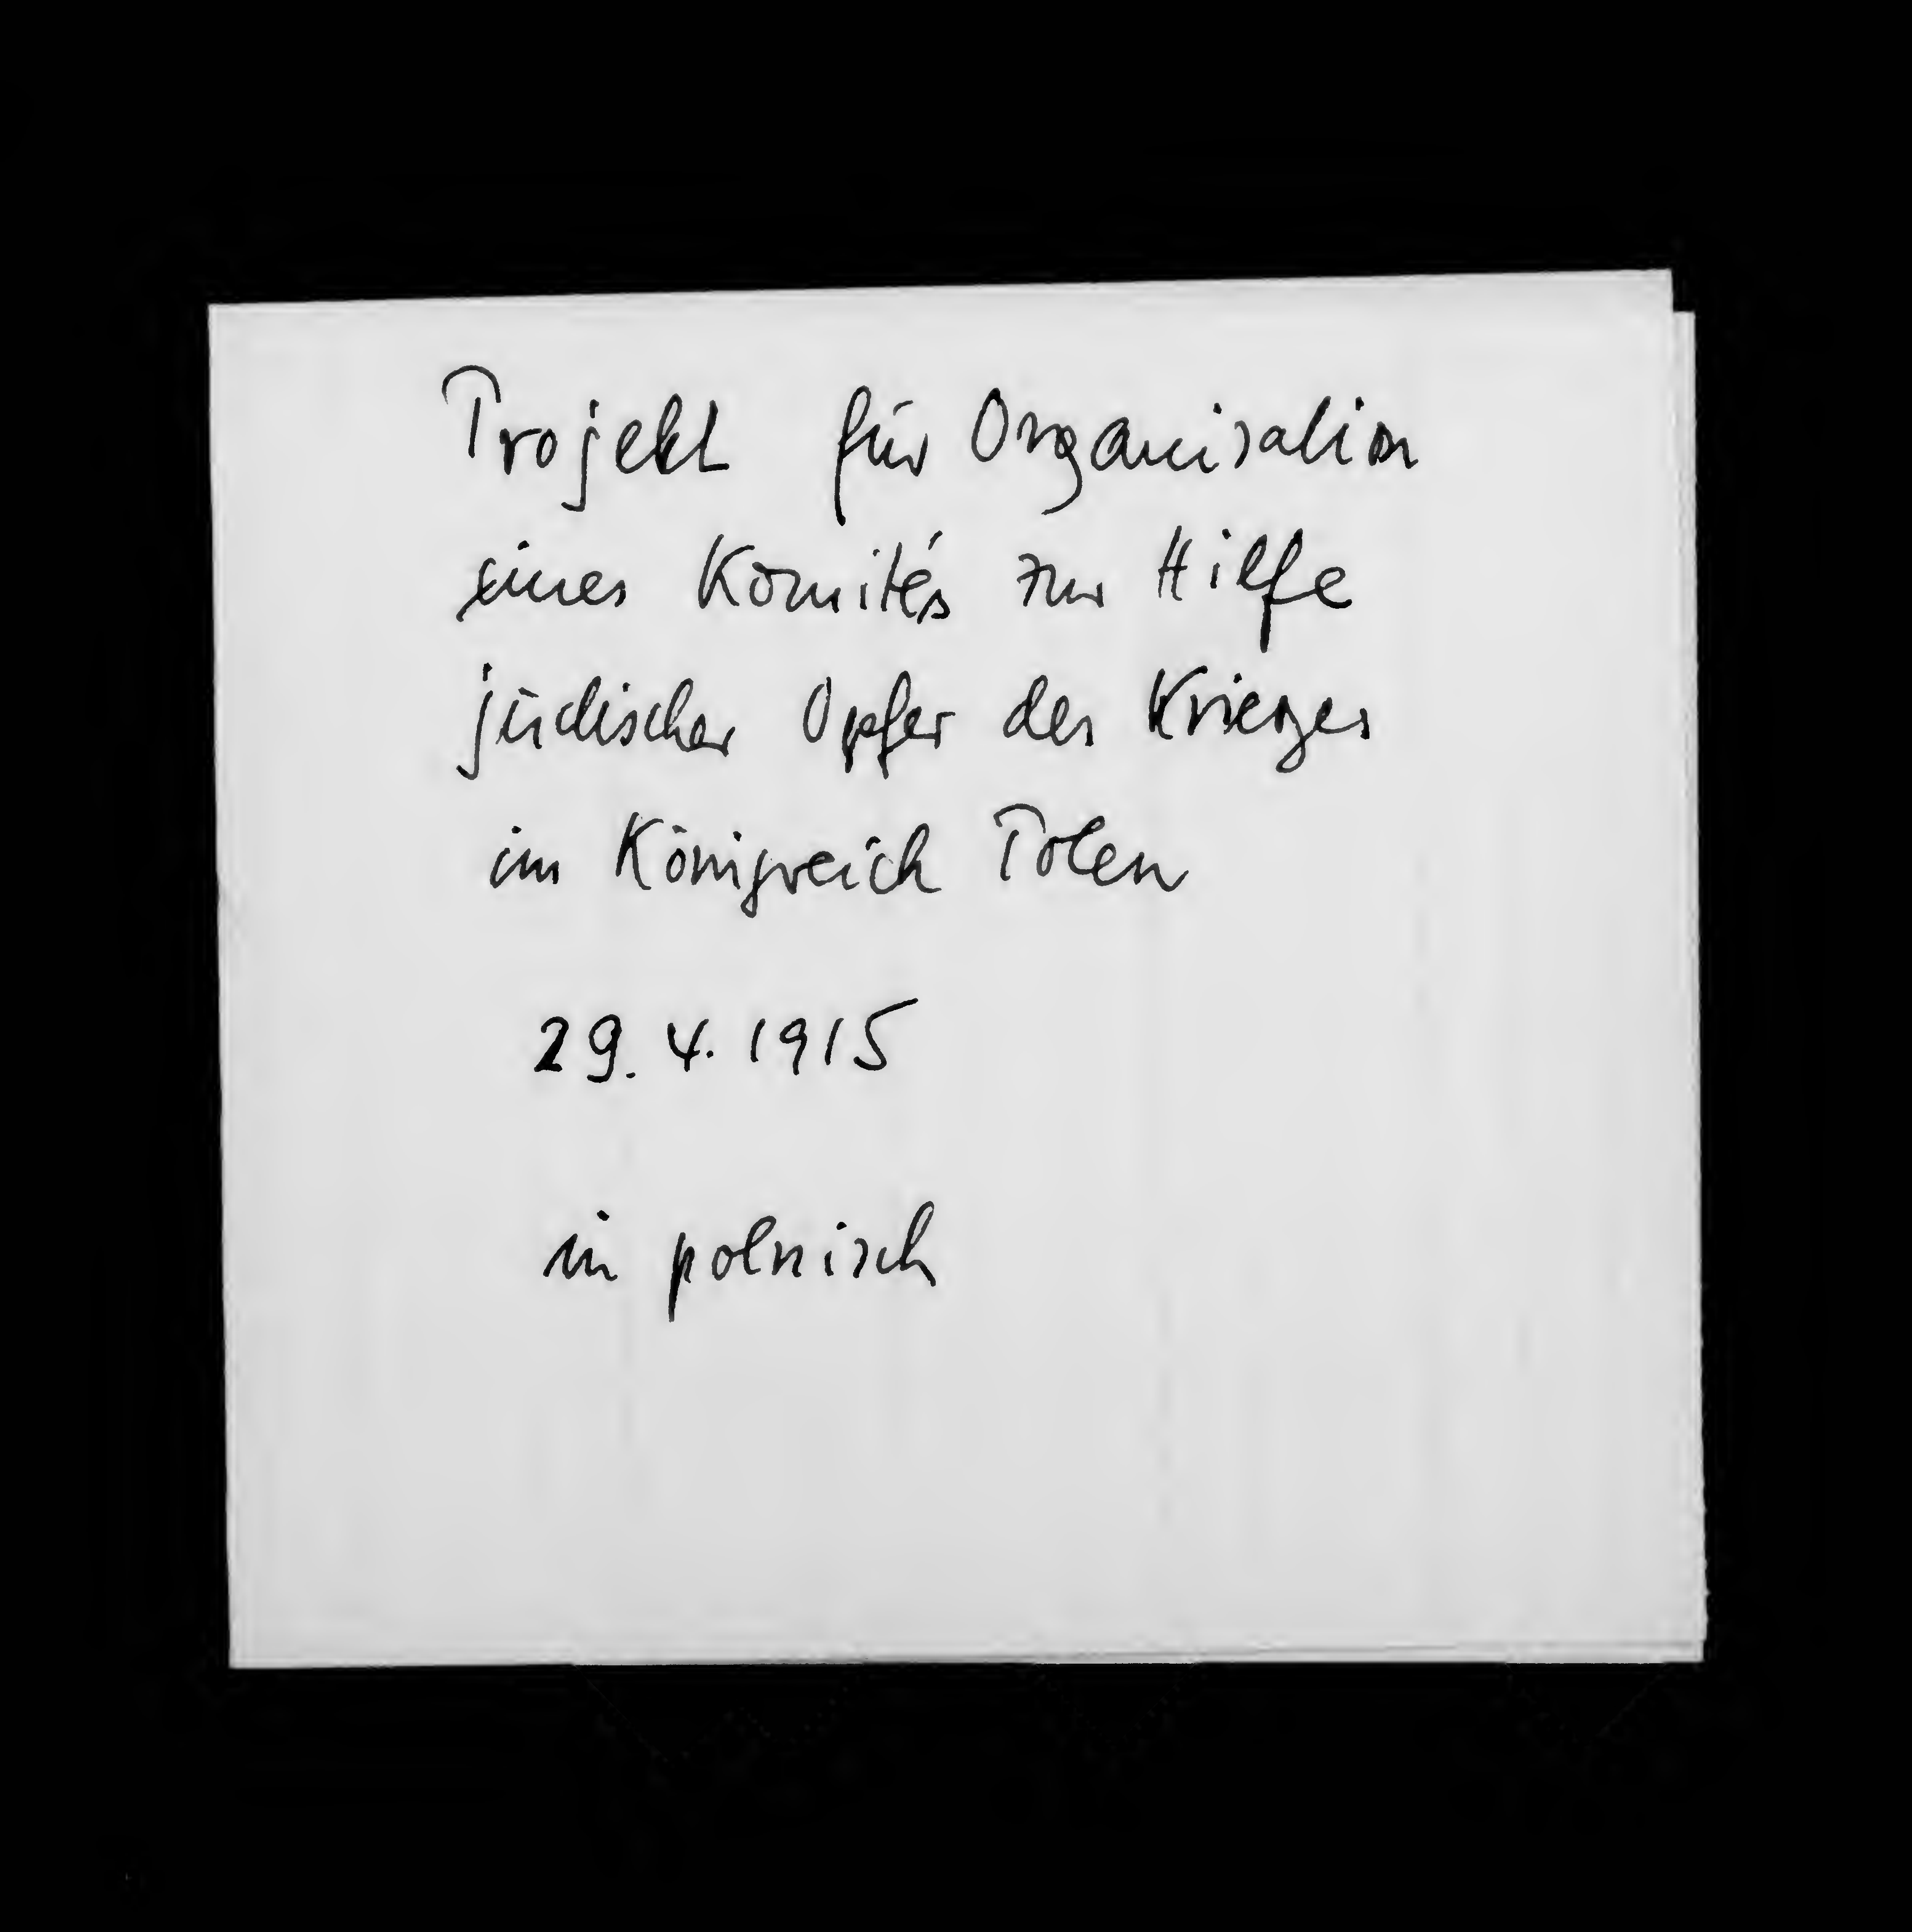 Projekt für Organisation
eines Komités zur Hilfe
jüdischer Opfer des Krieges
im Königreich Polen
29. 4. 1915
in polnisch